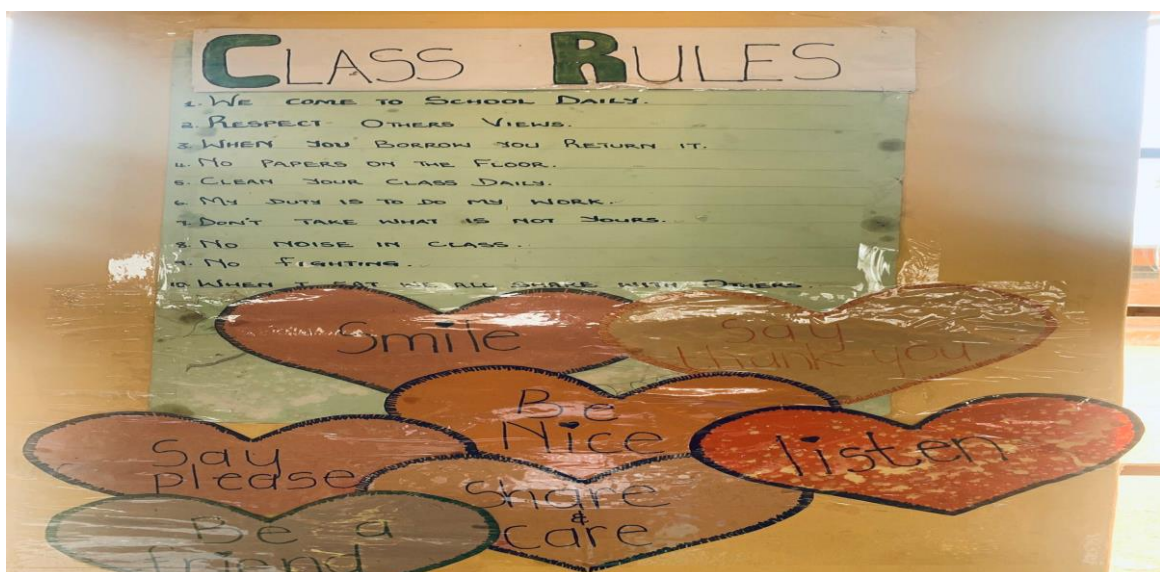 CLASS RULES
1. WE COME TO SCHOOL DAILY.
2. RESPECT OTHERS VIEWS.
3. WHEN YOU BORROW YOU RETURN IT.
4. NO PAPERS ON THE FLOOR.
5. CLEAN YOUR CLASS DAILY.
6. MY DUTY IS TO DO MY WORK.
7. DON'T TAKE WHAT IS NOT YOURS.
8. NO NOISE IN CLASS.
9. NO FIGHTING.
10. WHEN I EAT WE ALL SHARE WITH OTHERS.
Smile
Say
thank you
Be
Nice
listen
Say
please
Share
&
care
Be a
friend